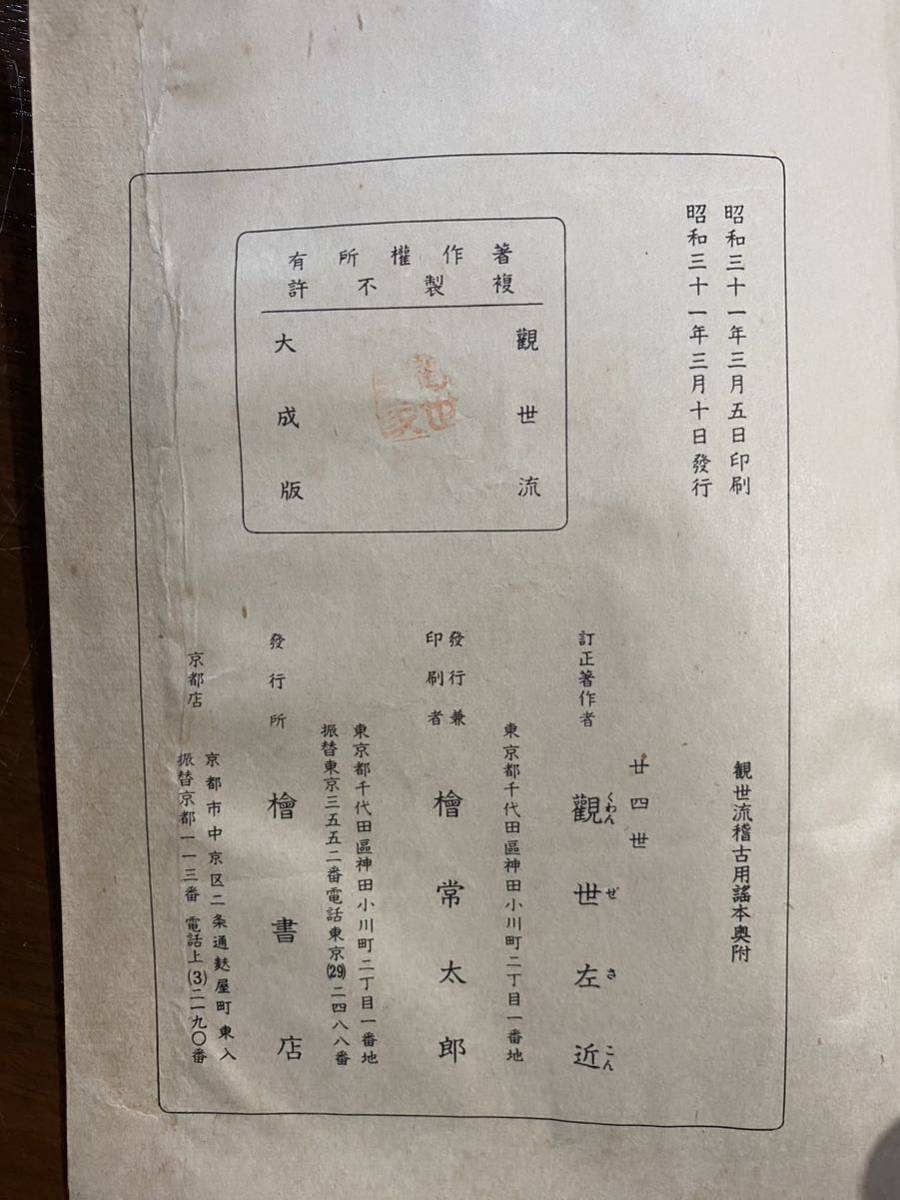 昭和三十一年三月五日印刷
昭和三十一年三月十日發行
著作權所有
複製不許
觀世流
大成版
観世流稽古用謠本奥附
廿四世
訂正著作者 觀世左近
くわんぜさこん
東京都千代田區神田小川町二丁目一番地
發行兼
印刷者 檜常太郎
東京都千代田區神田小川町二丁目一番地
振替東京三五五二番電話東京(29)二四八八番
發行所 檜書店
京都店
京都市中京区二条通麩屋町東入
振替京都一一三番 電話上(3)二一九〇番